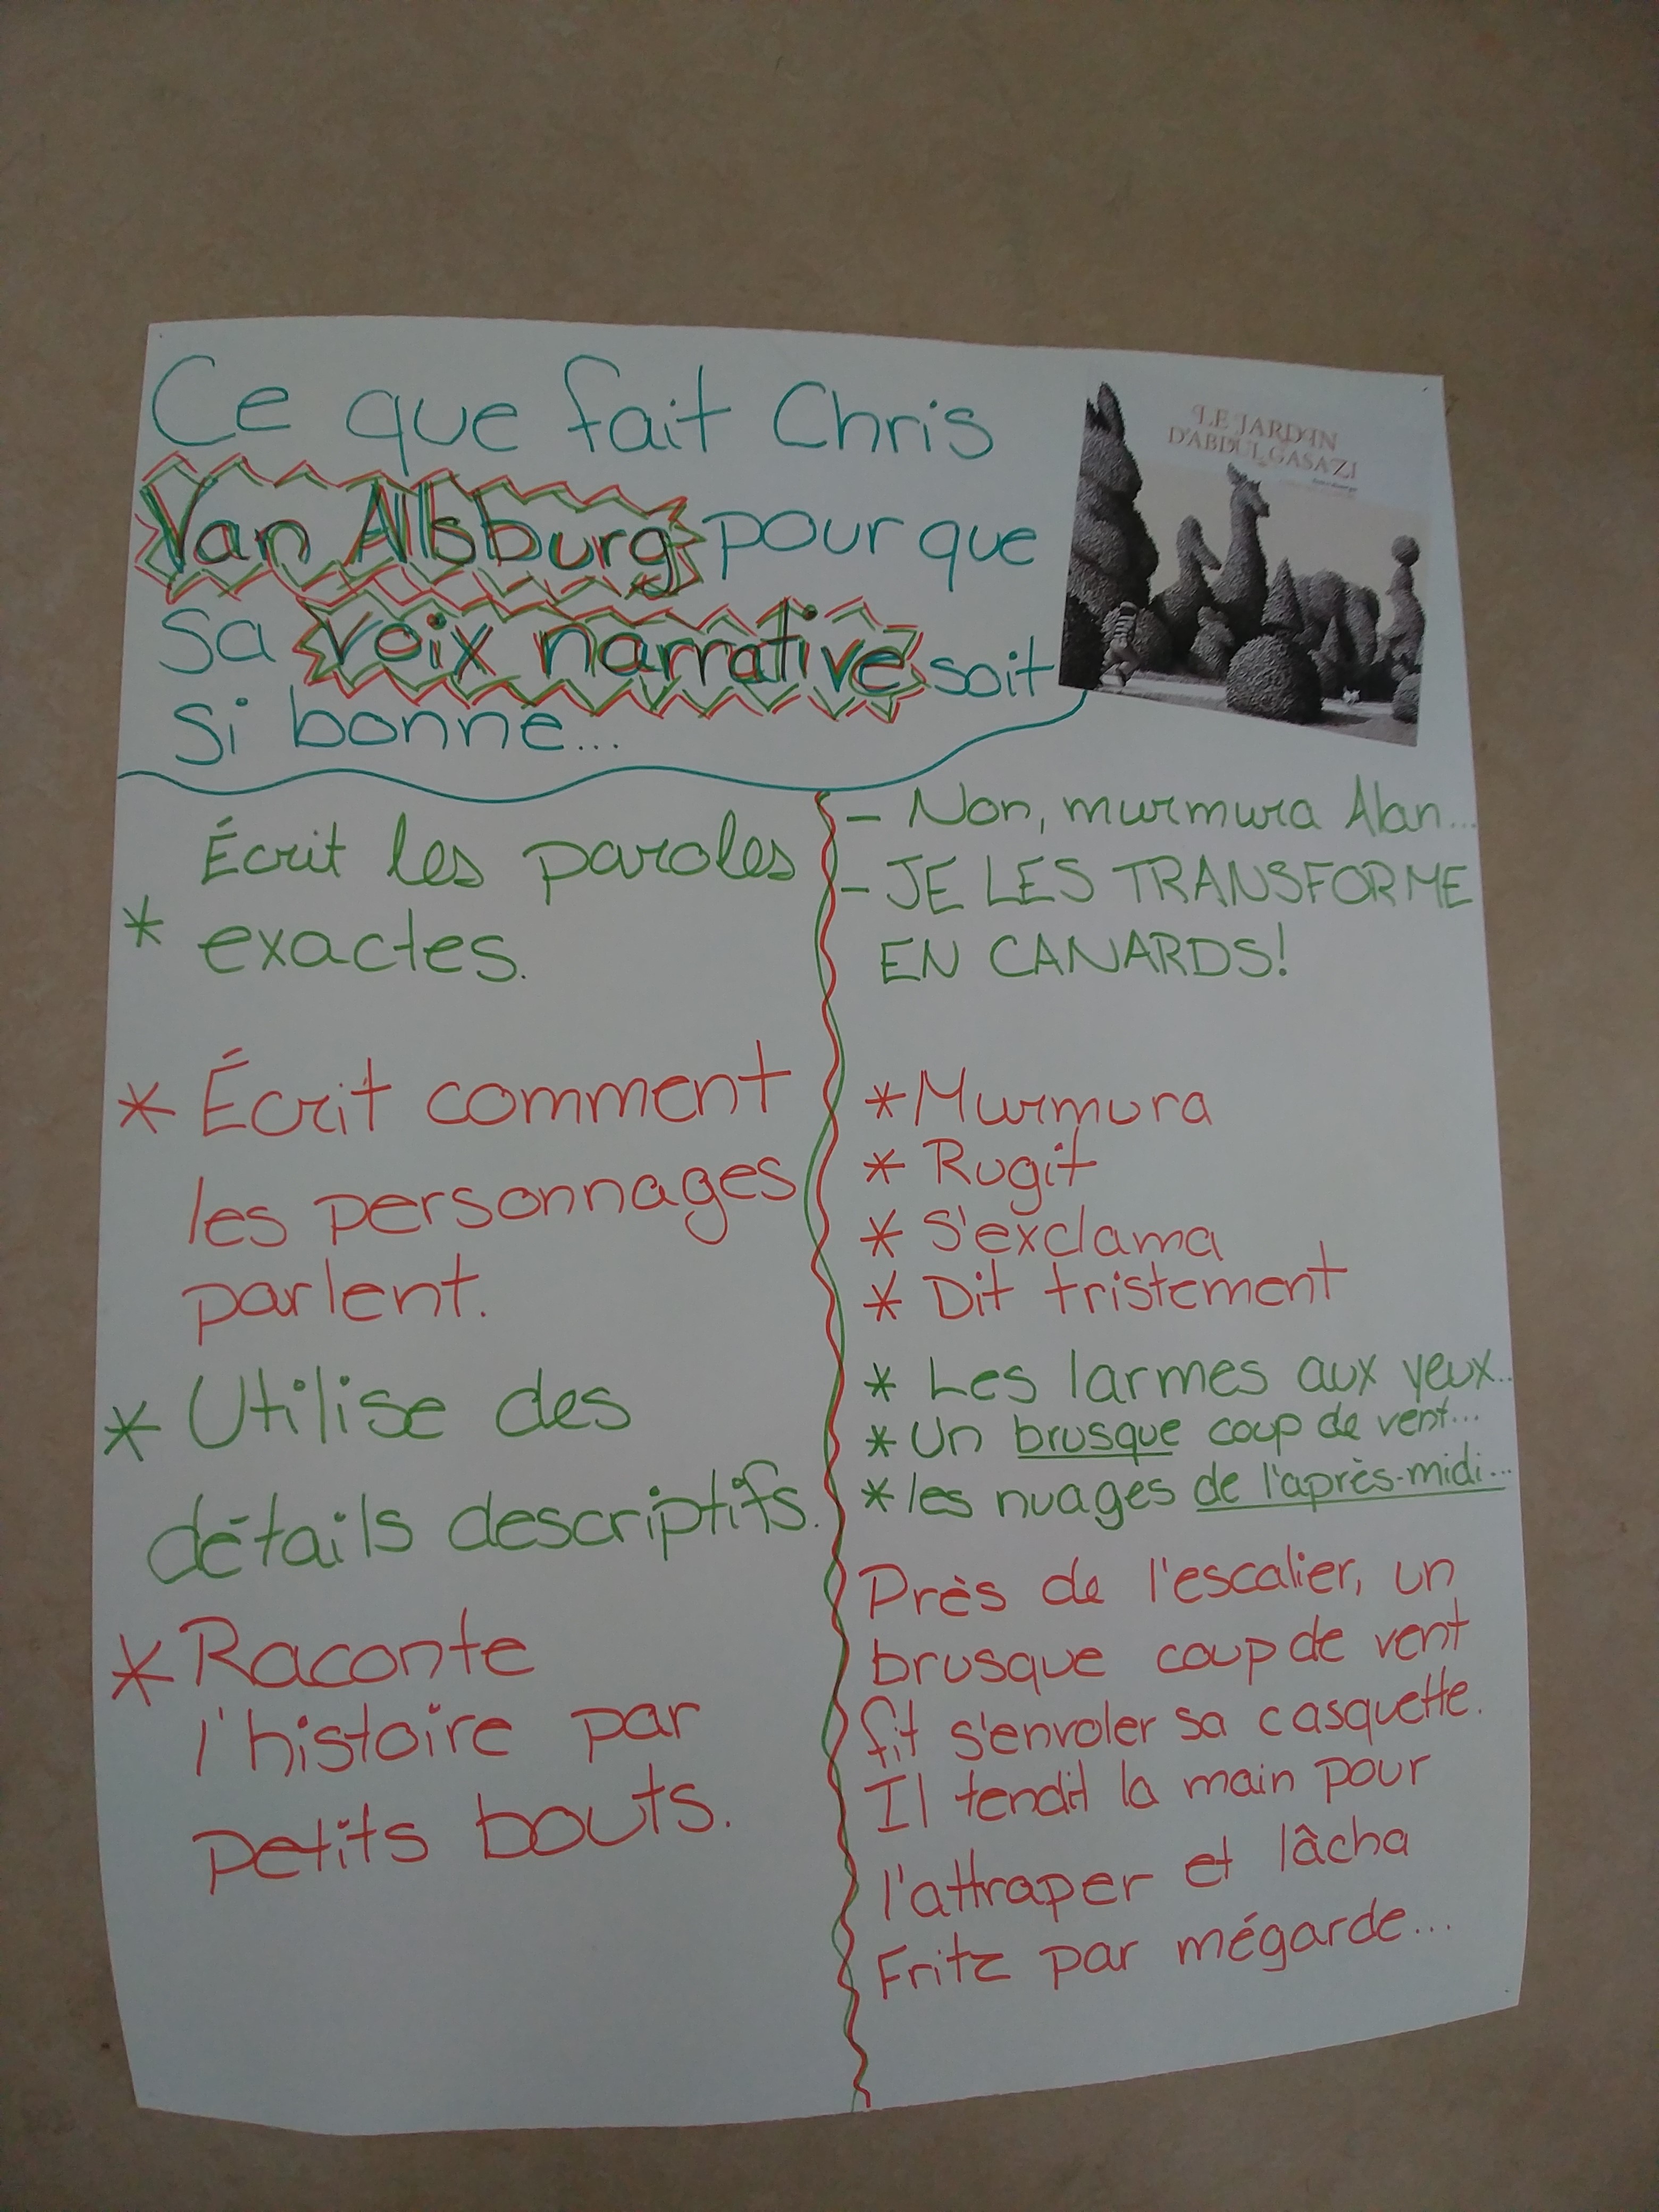 Ce que fait Chris
Van Allsburg pour que
sa voix narrative soit
si bonne...
LE JARDIN
D'ABDUL GASAZI
Écrit les paroles
* exactes.
- Non, murmura Alan...
- JE LES TRANSFORME
EN CANARDS!
* Écrit comment
les personnages
parlent.
* Murmura
* Rugit
* S'exclama
* Dit tristement
* Utilise des
détails descriptifs.
* Les larmes aux yeux...
* Un brusque coup de vent...
* les nuages de l'après-midi...
* Raconte
l'histoire par
petits bouts.
Près de l'escalier, un
brusque coup de vent
fit s'envoler sa casquette.
Il tendit la main pour
l'attraper et lâcha
Fritz par mégarde...